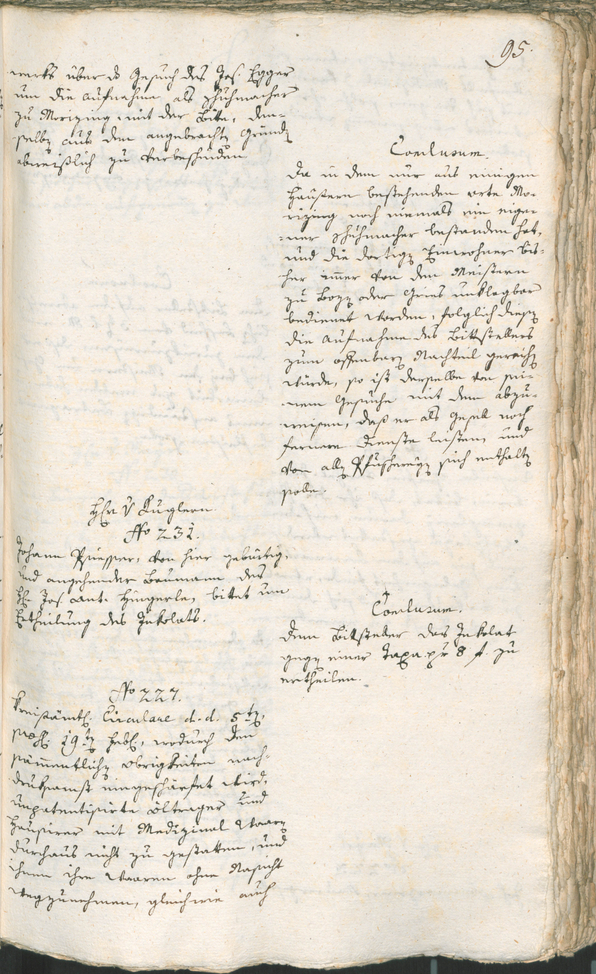 95.
werks über das Gesuch des Jos: Egger
um die Aufnahme als Schuhmacher
zu Morizing mit der Bitte, den-
selben aus den angebrachten Gründen
abweislich zu verbescheiden.
Conclusum.
Da in dem nur aus einigen
Häusern bestehenden Orte Mo-
rizing noch niemals ein eige-
ner Schuhmacher bestanden hat,
und die dortigen Einwohner bis-
her immer von den Meistern
zu Bozen oder Gries unklagbar
bedienet worden, folglich diesen
die Aufnahme des Bittstellers
zum offenbaren Nachteil gereichen
würde, so ist derselbe von sei-
nem Gesuche mit dem abzu-
weisen, daß er als Gesell noch
fernere Dienste leisten, und
von allen Pfuschereyen sich enthalten
solle.
Hr. v Kuglern
No 232.
Johann von hier gebürtig,
und angehender Baumann des
Hr. Jos. Ant. Hingerle, bittet um
Ertheilung des Inkolats.
Conclusum.
Dem Bittsteller das Inkolat
gegen einer Taxa pr 8 f zu
ertheilen.
No 227.
Kreisämtl. Circulare d. d. 5ten,
prs. 19ten Febl, wodurch den
sämmentlichen Obrigkeiten nach-
druksamst eingeschärfet wird,
unpatentisirte Ölträger und
Hausirer mit Medizinal Waaren
durchaus nicht zu gestatten, und
ihnen ihre Waaren ohne Nachsicht
wegzunehmen, gleichwie auch